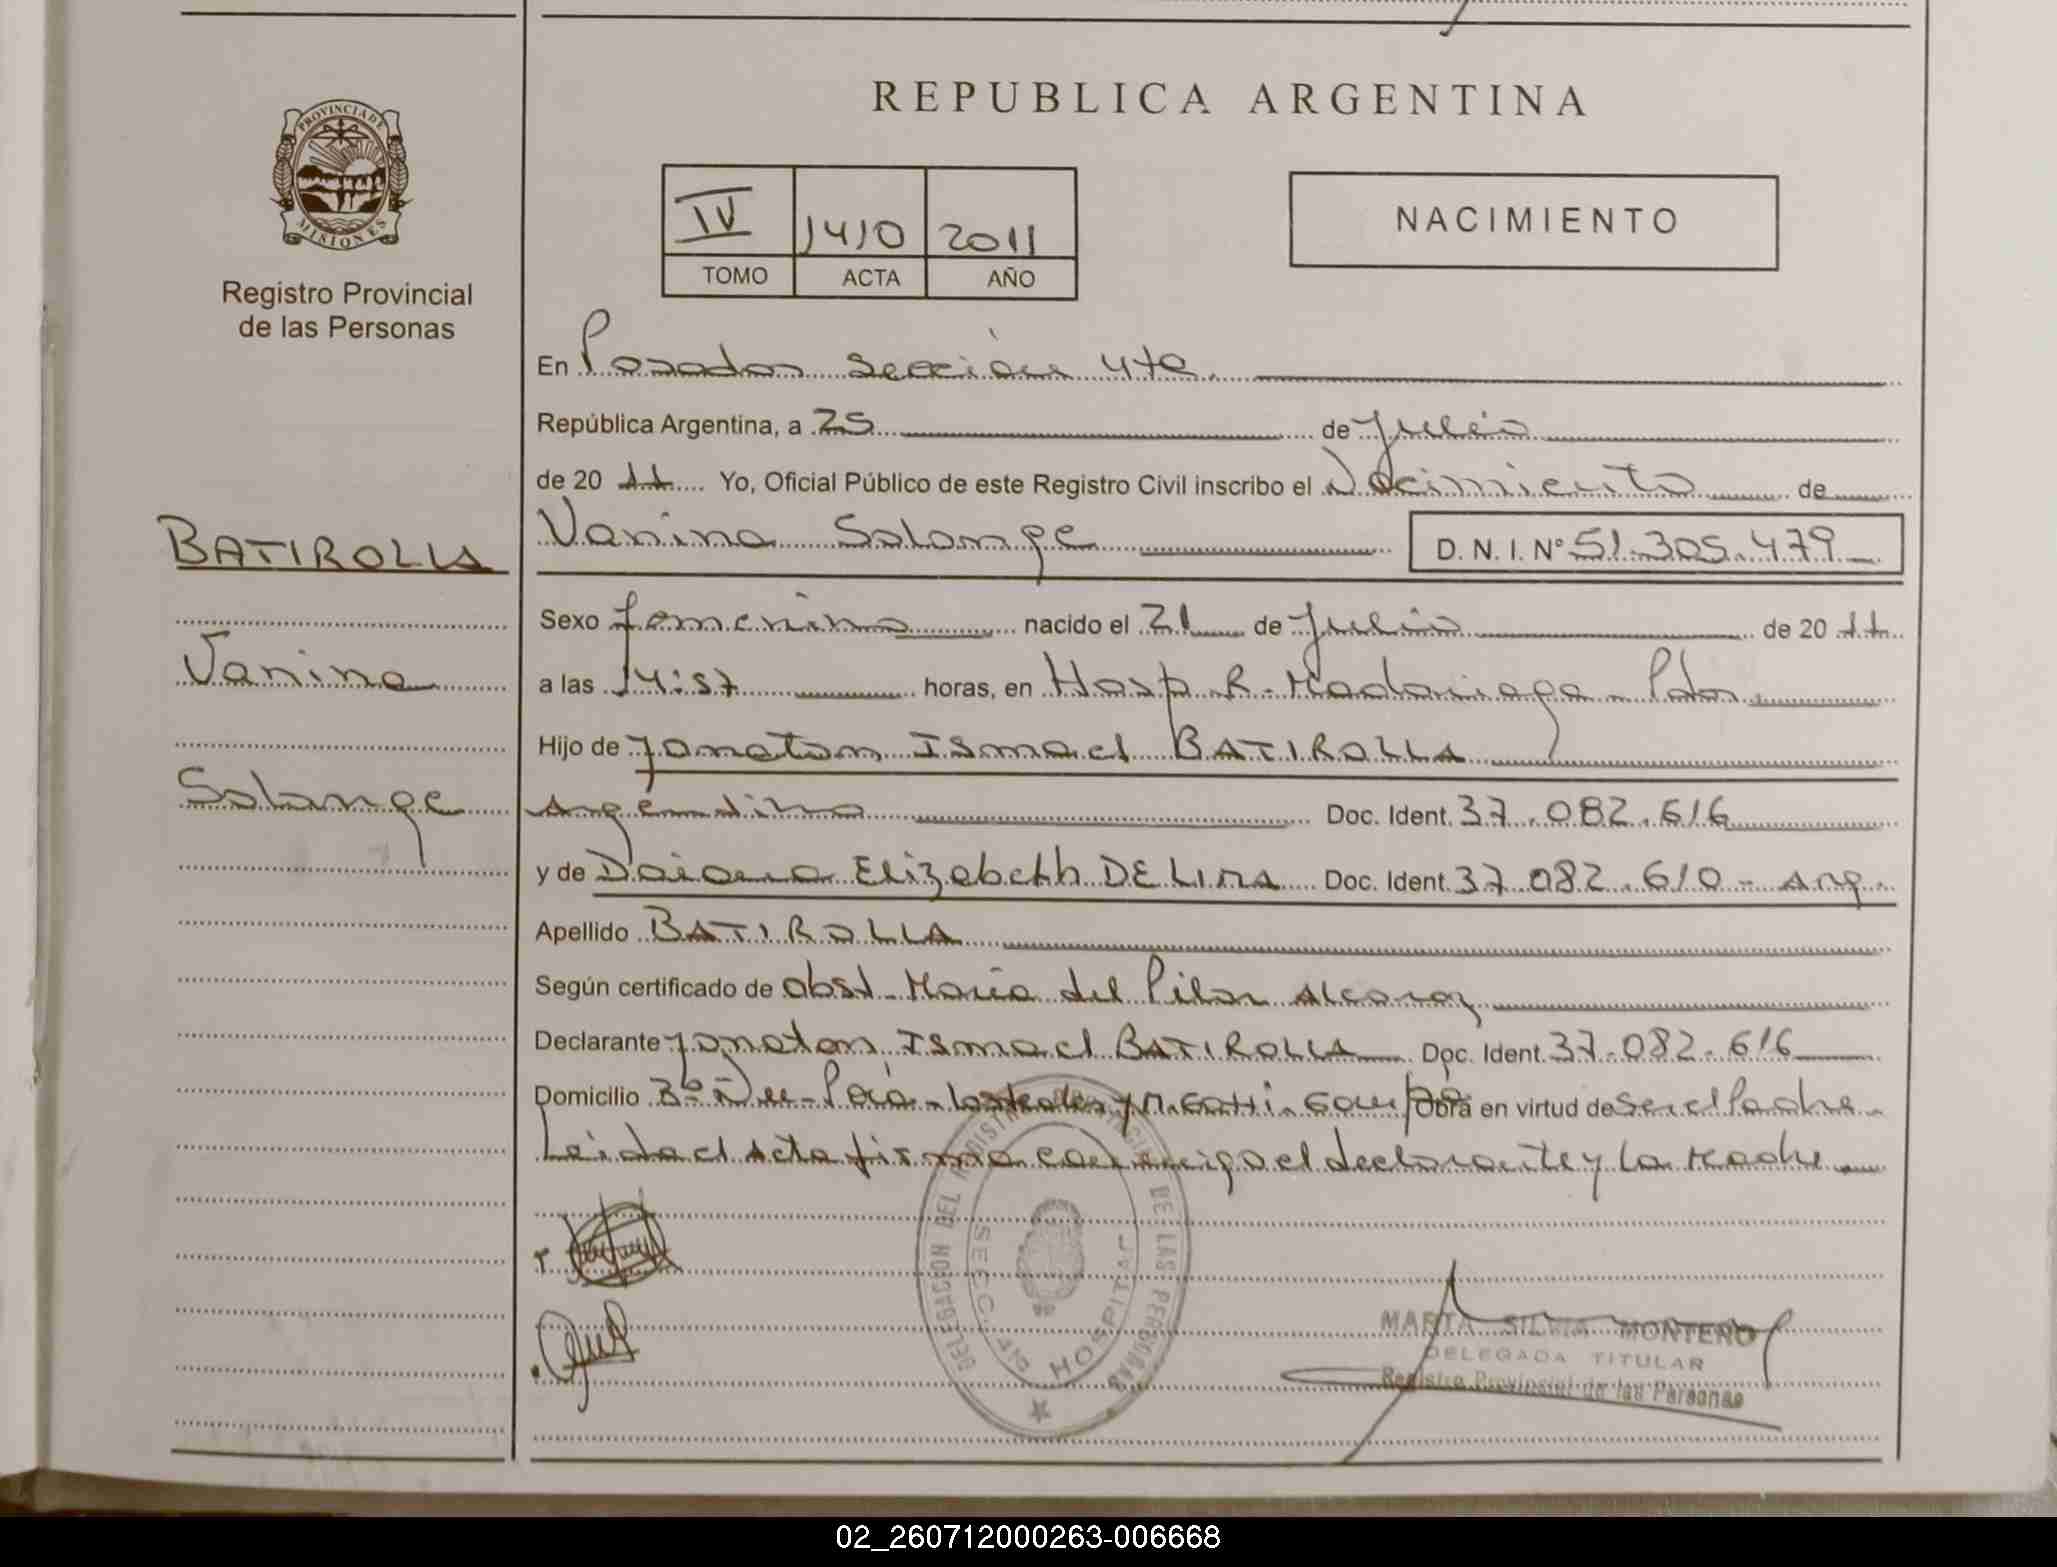 REPUBLICA ARGENTINA
PROVINCIA DE
MISIONES
Registro Provincial
de las Personas
IV 1410 2011
TOMO ACTA AÑO
NACIMIENTO
En Posadas Sección 4ta.
República Argentina, a 25 de Julio
de 20 11 Yo, Oficial Público de este Registro Civil inscribo el Nacimiento de
Vanina Solange D. N. I. Nº 51.305.479
BATIROLLA
Vanina
Solange
Sexo femenino nacido el 21 de Julio de 20 11
a las 14:57 horas, en Hosp. R. Madariaga - Pdas
Hijo de Jonatan Ismael BATIROLLA
Argentina Doc. Ident. 37.082.616
y de Daiana Elizabeth DE LIMA Doc. Ident. 37.082.610 - Arg.
Apellido BATIROLLA
Según certificado de obst. María del Pilar Alcaraz
Declarante Jonatan Ismael BATIROLLA Doc. Ident. 37.082.616
Domicilio Obra en virtud de ser el Padre
Leida el Acta firma conmigo el declarante y la Madre
DELEGACION DEL REGISTRO PROVINCIAL DE LAS PERSONAS
SECC. 4ta HOSPITAL
MARTA SILVIA MONTERO
DELEGADA TITULAR
Registro Provincial de las Personas
02_260712000263-006668